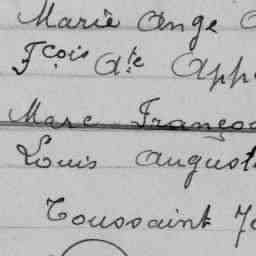 Marie Ange
Fçois Ate App
Marc Franço
Louis August
Toussaint Je